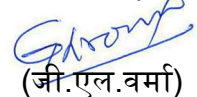 (जी.एल.वर्मा)